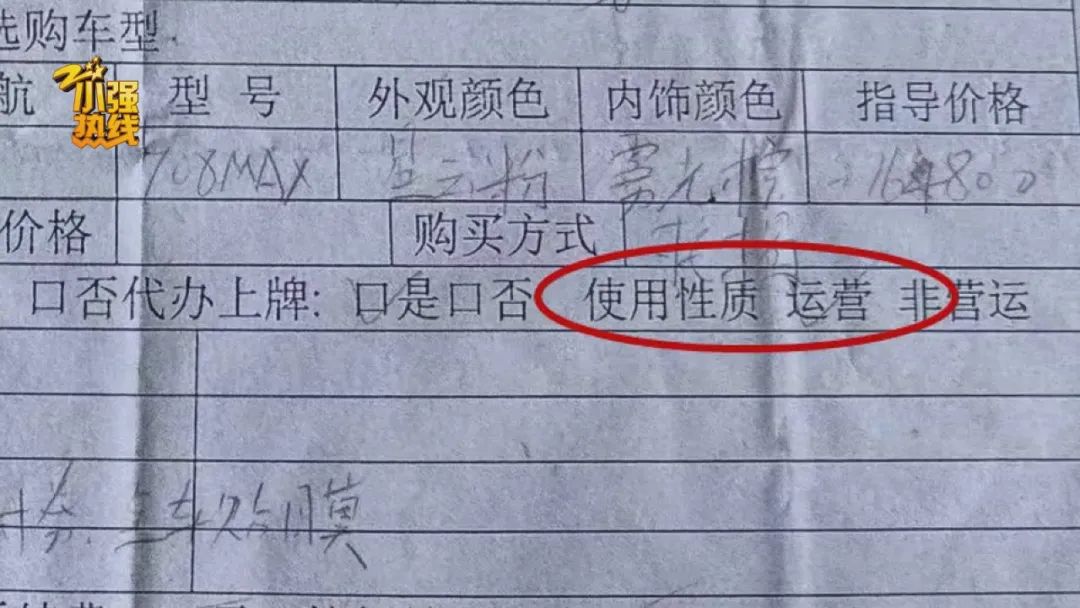 选购车型
小强热线
航 型号 外观颜色 内饰颜色 指导价格
708MAX 粉 164800
价格 购买方式
口否代办上牌: 口是口否 使用性质 运营 非营运
车贴膜